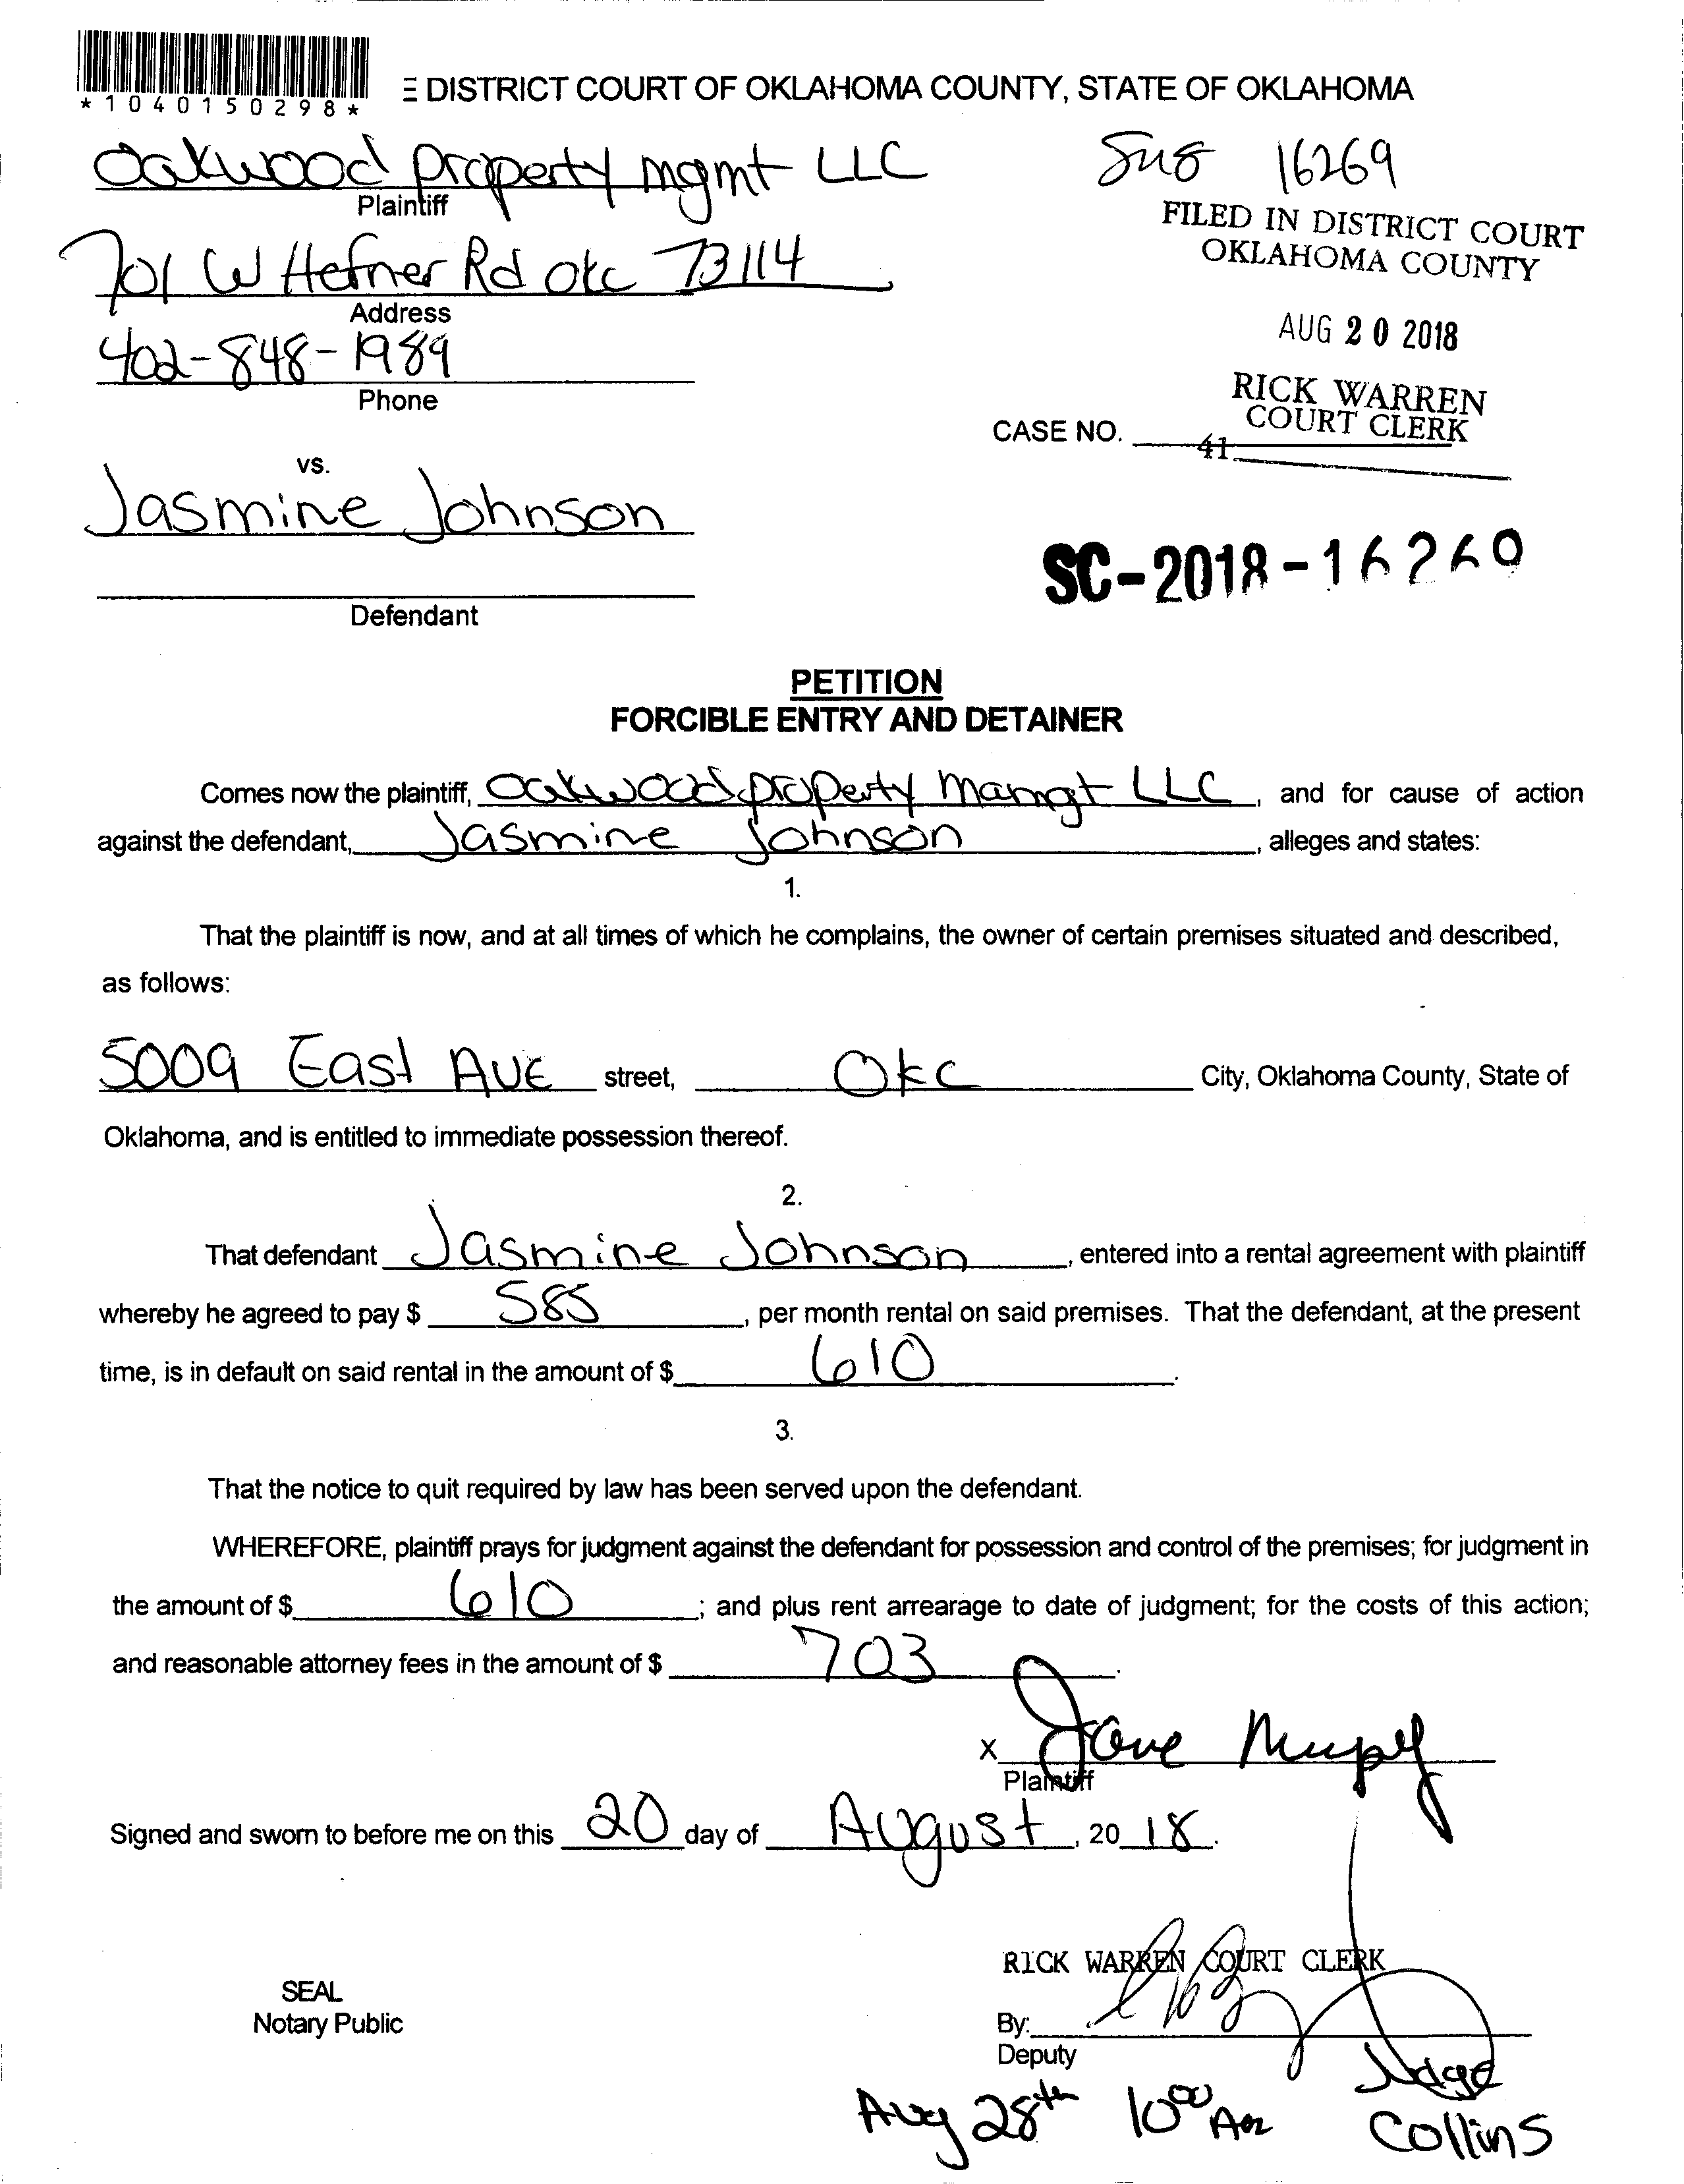 *1040150298*
DISTRICT COURT OF OKLAHOMA COUNTY, STATE OF OKLAHOMA
Oakwood property mgmt LLC
Plaintiff
16269
FILED IN DISTRICT COURT
OKLAHOMA COUNTY
701 W Hefner Rd okc 73114
Address
AUG 20 2018
402-848-1989
Phone
RICK WARREN
COURT CLERK
CASE NO.
41
vs.
Jasmine Johnson
Defendant
SC-2018-16269
PETITION
FORCIBLE ENTRY AND DETAINER
Comes now the plaintiff, Oakwood property Mamgt LLC, and for cause of action
against the defendant, Jasmine Johnson, alleges and states:
1.
That the plaintiff is now, and at all times of which he complains, the owner of certain premises situated and described,
as follows:
5009 East AVE street, Okc City, Oklahoma County, State of
Oklahoma, and is entitled to immediate possession thereof.
2.
That defendant Jasmine Johnson, entered into a rental agreement with plaintiff
whereby he agreed to pay $ 585, per month rental on said premises. That the defendant, at the present
time, is in default on said rental in the amount of $ 610.
3.
That the notice to quit required by law has been served upon the defendant.
WHEREFORE, plaintiff prays for judgment against the defendant for possession and control of the premises; for judgment in
the amount of $ 610; and plus rent arrearage to date of judgment; for the costs of this action;
and reasonable attorney fees in the amount of $ 703.
X
Plaintiff
Signed and sworn to before me on this 20 day of August, 2018.
RICK WARREN COURT CLERK
SEAL
Notary Public
By:
Deputy
Aug 28th 10 00 Am Judge
Collins